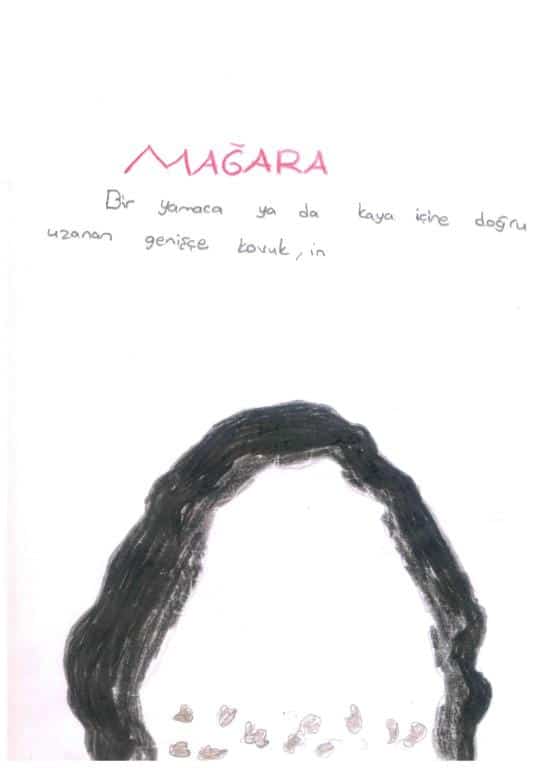 MAĞARA
Bir yamaca ya da kaya içine doğru
uzanan genişçe kovuk, in